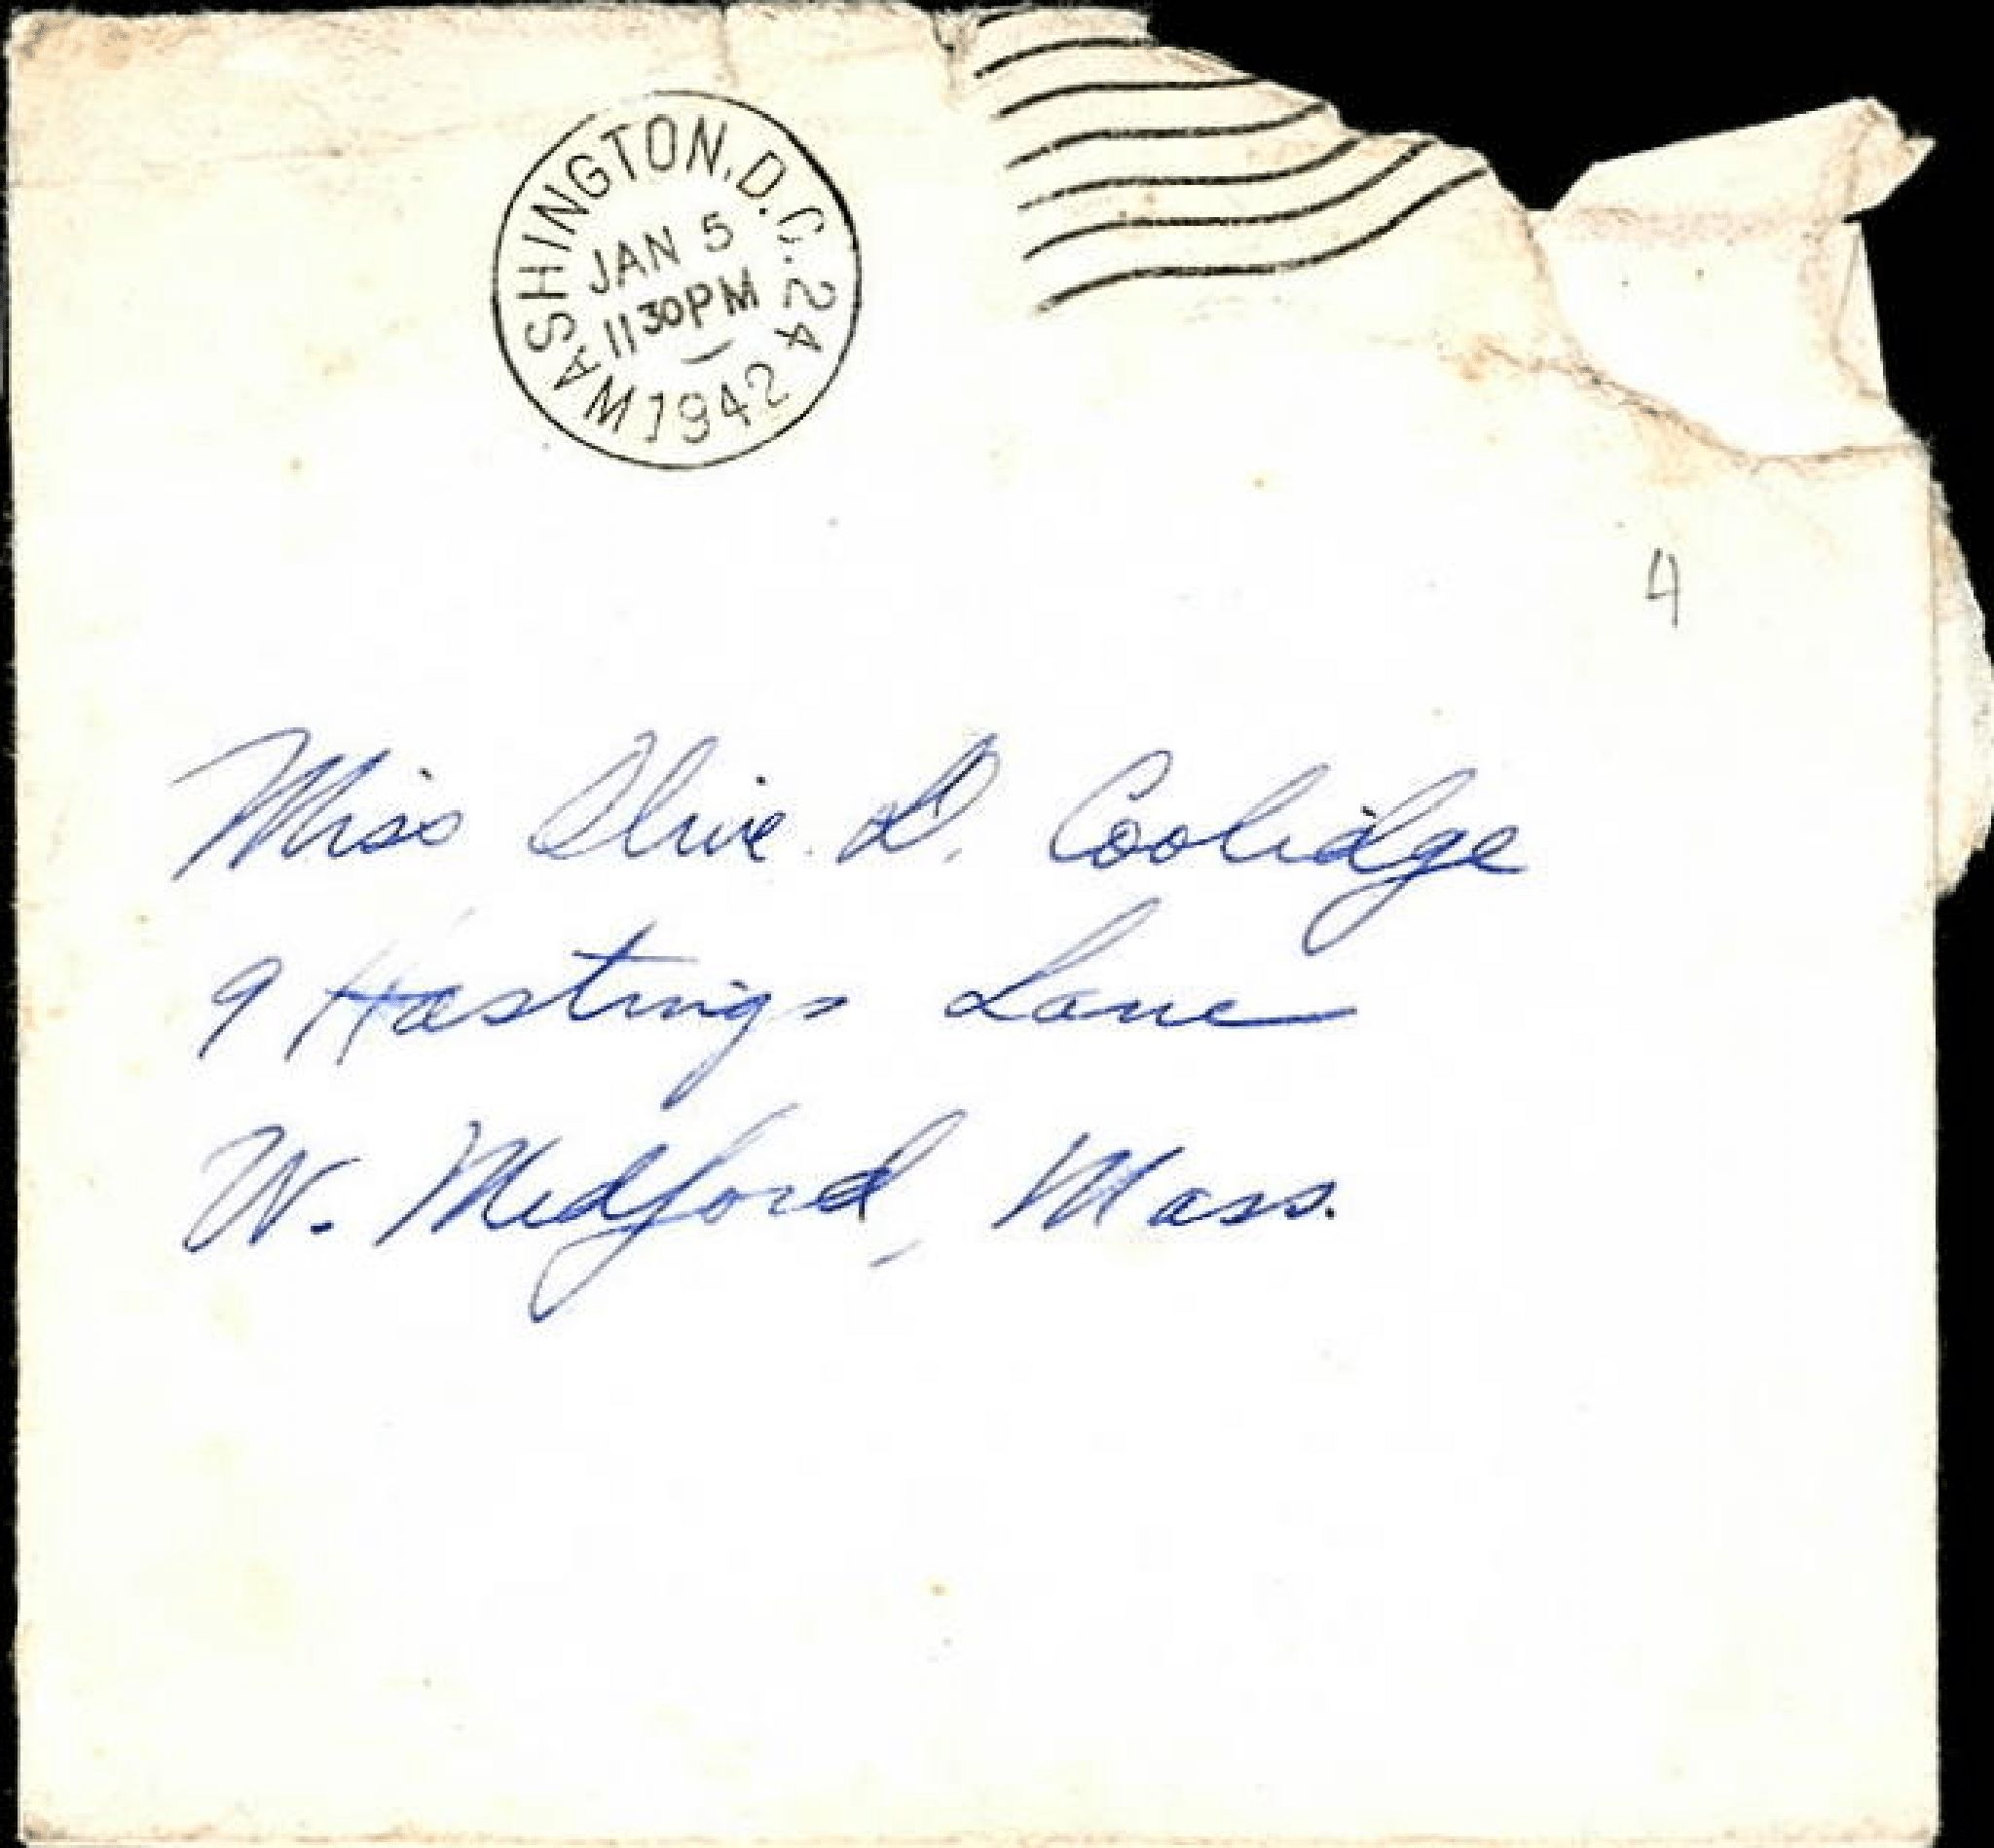 WASHINGTON, D.C. 24
JAN 5
11 30 PM
1942
4
Miss Olive D. Coolidge
9 Hastings Lane
W. Medford, Mass.